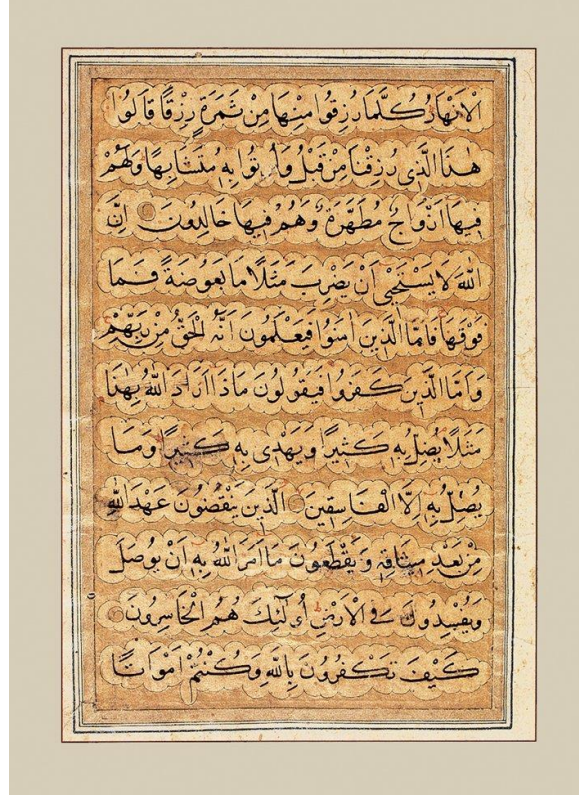 الْاَنْهَارُ كُلَّمَا رُزِقُوا مِنْهَا مِنْ ثَمَرَةٍ رِزْقًا قَالُوا
هٰذَا الَّذِى رُزِقْنَا مِنْ قَبْلُ وَاُتُوا بِهِ مُتَشَابِهًا وَلَهُمْ
فِيهَا اَزْوَاجٌ مُطَهَّرَةٌ وَهُمْ فِيهَا خَالِدُونَ اِنَّ
اللّٰهَ لَا يَسْتَحْيٖى اَنْ يَضْرِبَ مَثَلًا مَا بَعُوضَةً فَمَا
فَوْقَهَا فَاَمَّا الَّذِينَ اٰمَنُوا فَيَعْلَمُونَ اَنَّهُ الْحَقُّ مِنْ رَبِّهِمْ
وَاَمَّا الَّذِينَ كَفَرُوا فَيَقُولُونَ مَاذَا اَرَادَ اللّٰهُ بِهٰذَا
مَثَلًا يُضِلُّ بِهِ كَثِيرًا وَيَهْدِى بِهِ كَثِيرًا وَمَا
يُضِلُّ بِهِ اِلَّا الْفَاسِقِينَ الَّذِينَ يَنْقُضُونَ عَهْدَ اللّٰهِ
مِنْ بَعْدِ مِيثَاقِهِ وَيَقْطَعُونَ مَا اَمَرَ اللّٰهُ بِهِ اَنْ يُوصَلَ
وَيُفْسِدُونَ فِى الْاَرْضِ اُولٰئِكَ هُمُ الْخَاسِرُونَ
كَيْفَ تَكْفُرُونَ بِاللّٰهِ وَكُنْتُمْ اَمْوَاتًا